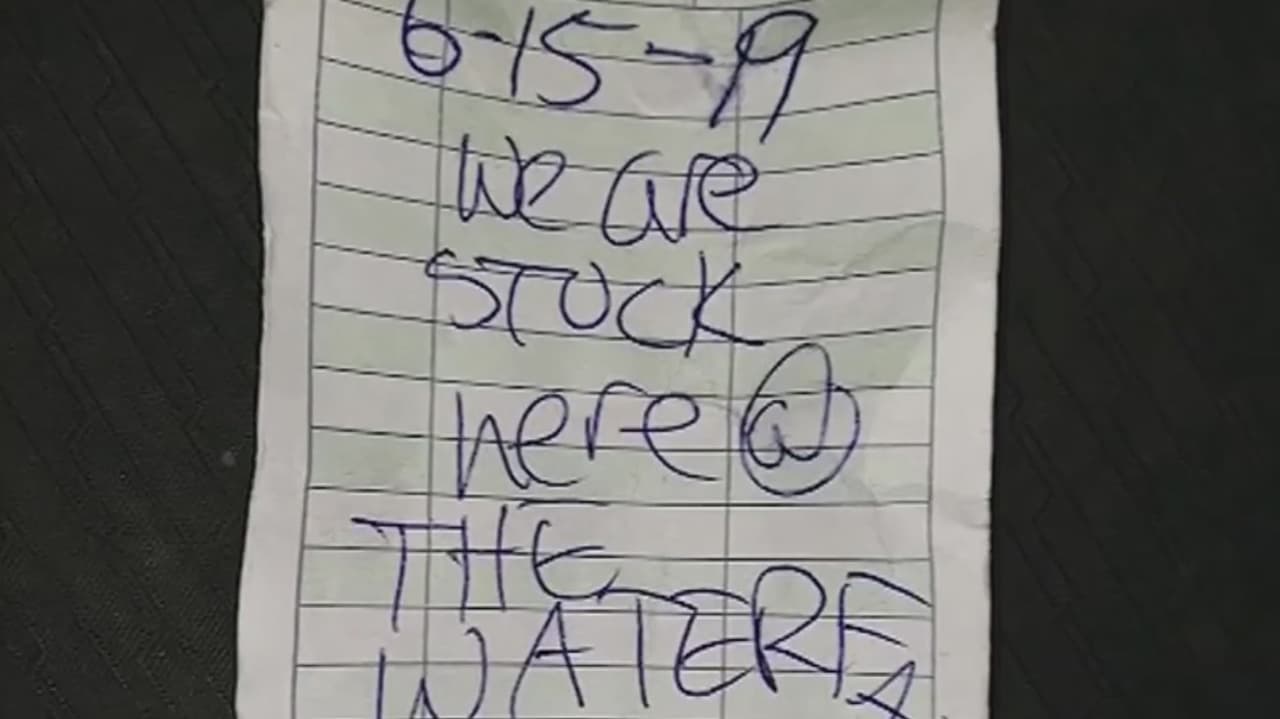 6-15-19
We are
STUCK
here @
THE
WATERFA